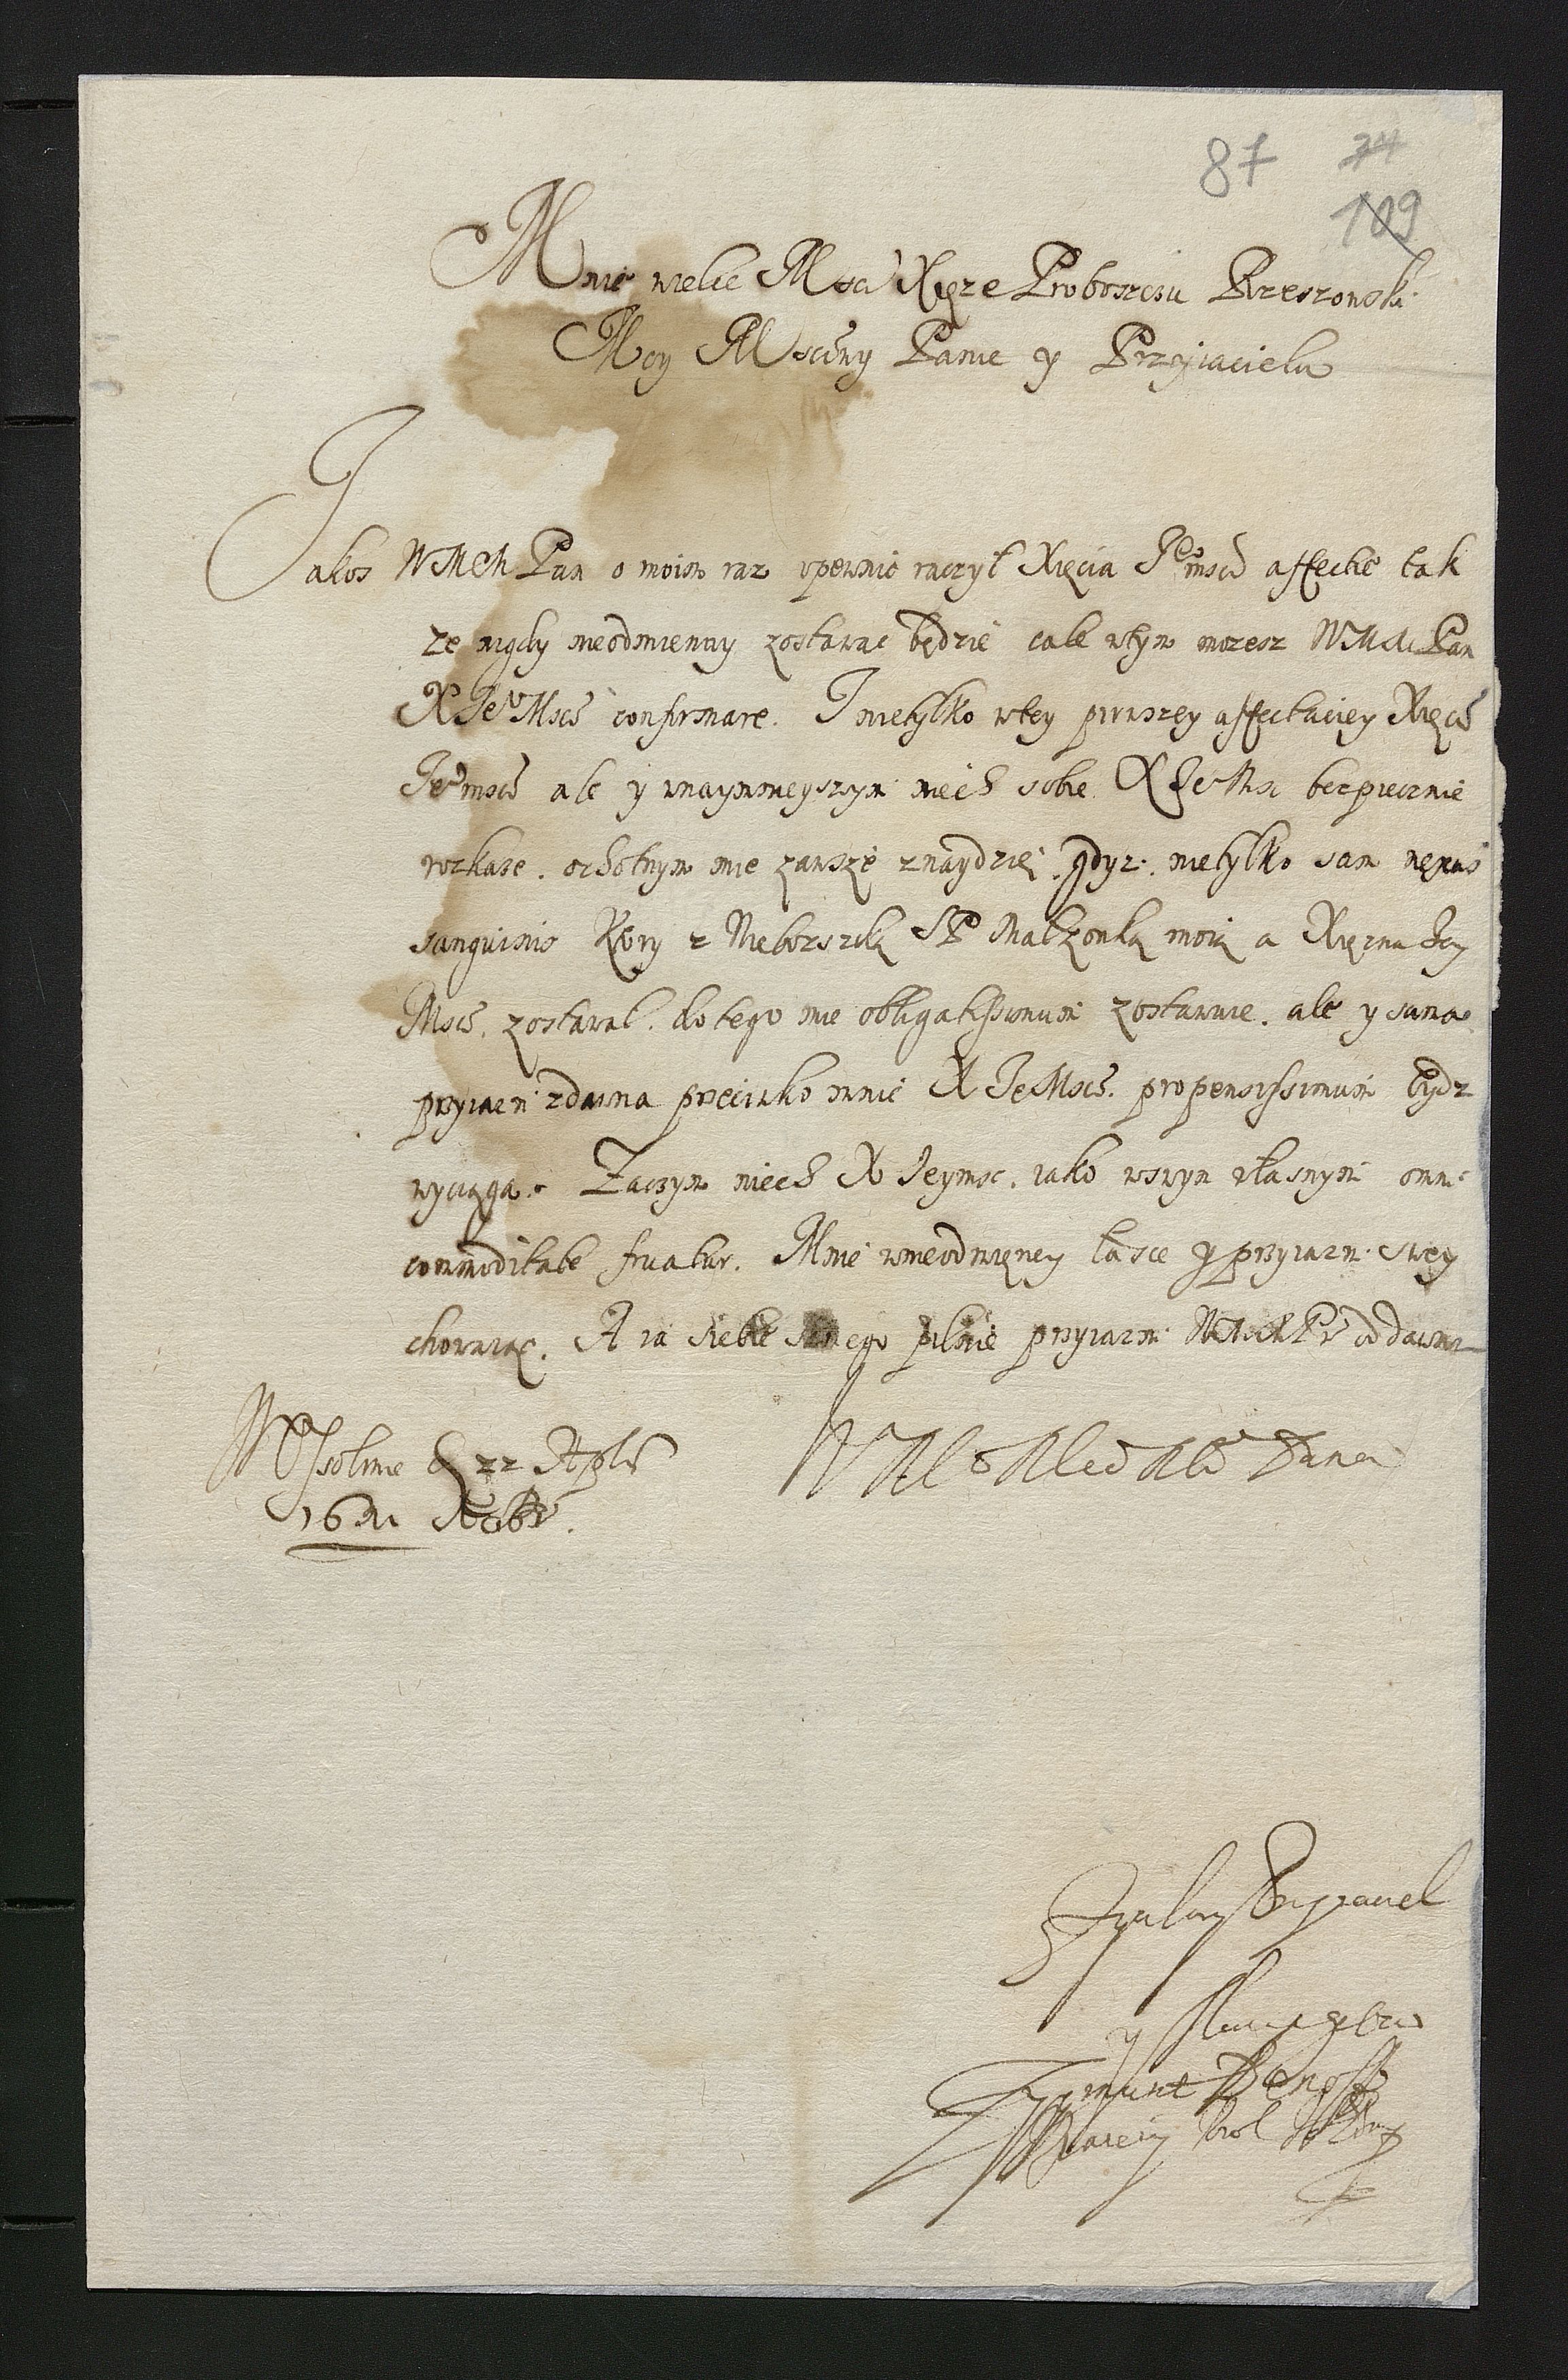 87 24
109
Mnie wielce Mści Xięże Proboszczu Rzeszowski
Moy Mościwy Panie y Przyiacielu
Jakoś WMM Pan o moim raz upewnić raczył Xięcia Je°mości affectie tak
ze nigdy nieodmienny zostawac będzie cale wtym mozesz WMM Pan
X Je° Mość confirmare. I nietylko wtey pirwszey affectaciey Xięcia
Je°mości ale y wnaymnieyszym niech sobie X Je Mść bezpiecznie
rozkaże. ochotnym mie zawsze znaydzie. gdyz. nietylko sam nexus
sanguinis z Nieborszczką SP Małzonką moią a Xięzna Jey
Mość. zostawał. do tego mie obligatissimum zostawuie. ale y sama
przyiazń zdawna przeciwko mnie X Je Mość. propensissimum bydz
wyciąga. Zaczym niech X Jeymść. iako wswym własnym omni
commoditate fruatur. Mnie wnieodmienney łasce y przyiazni swey
chowaiąc. A ia siebie samego pilnie przyiazni oddawam
W Ossolinie D 22 Aplis
Robr.
WM Mego Mści Pana
Zyczliwy Przyiaciel
y sługa
Zygmunt Denoff